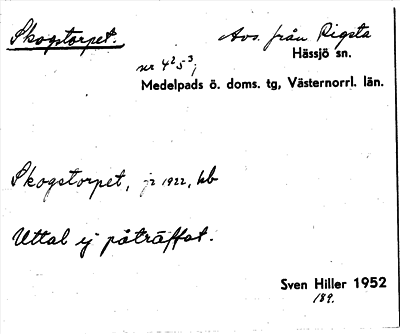 Skogstorpet.
Avs. från Rigsta
Hässjö sn.
nr 4²5³;
Medelpads ö. doms. tg, Västernorrl. län.
Skogstorpet, jr 1922, kb
Uttal ej påträffat.
Sven Hiller 1952
189.